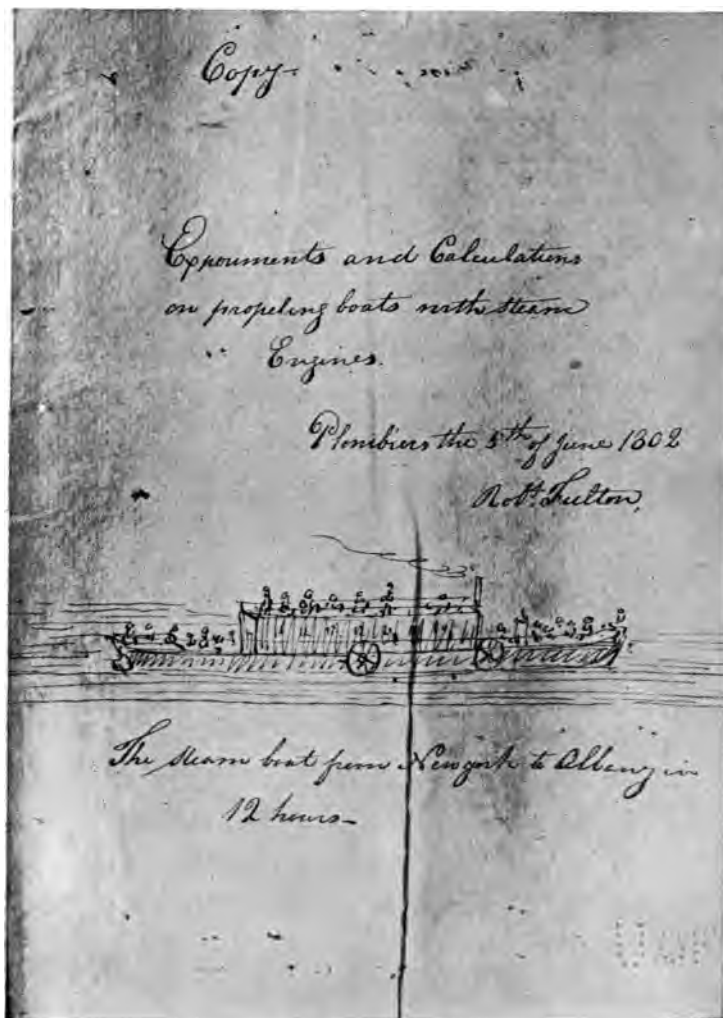 Copy
Experiments and Calculations
on propeling boats with steam
Engines.
Plombiers the 5th of June 1802
Robt. Fulton,
The steam boat from New york to Albany in
12 hours-